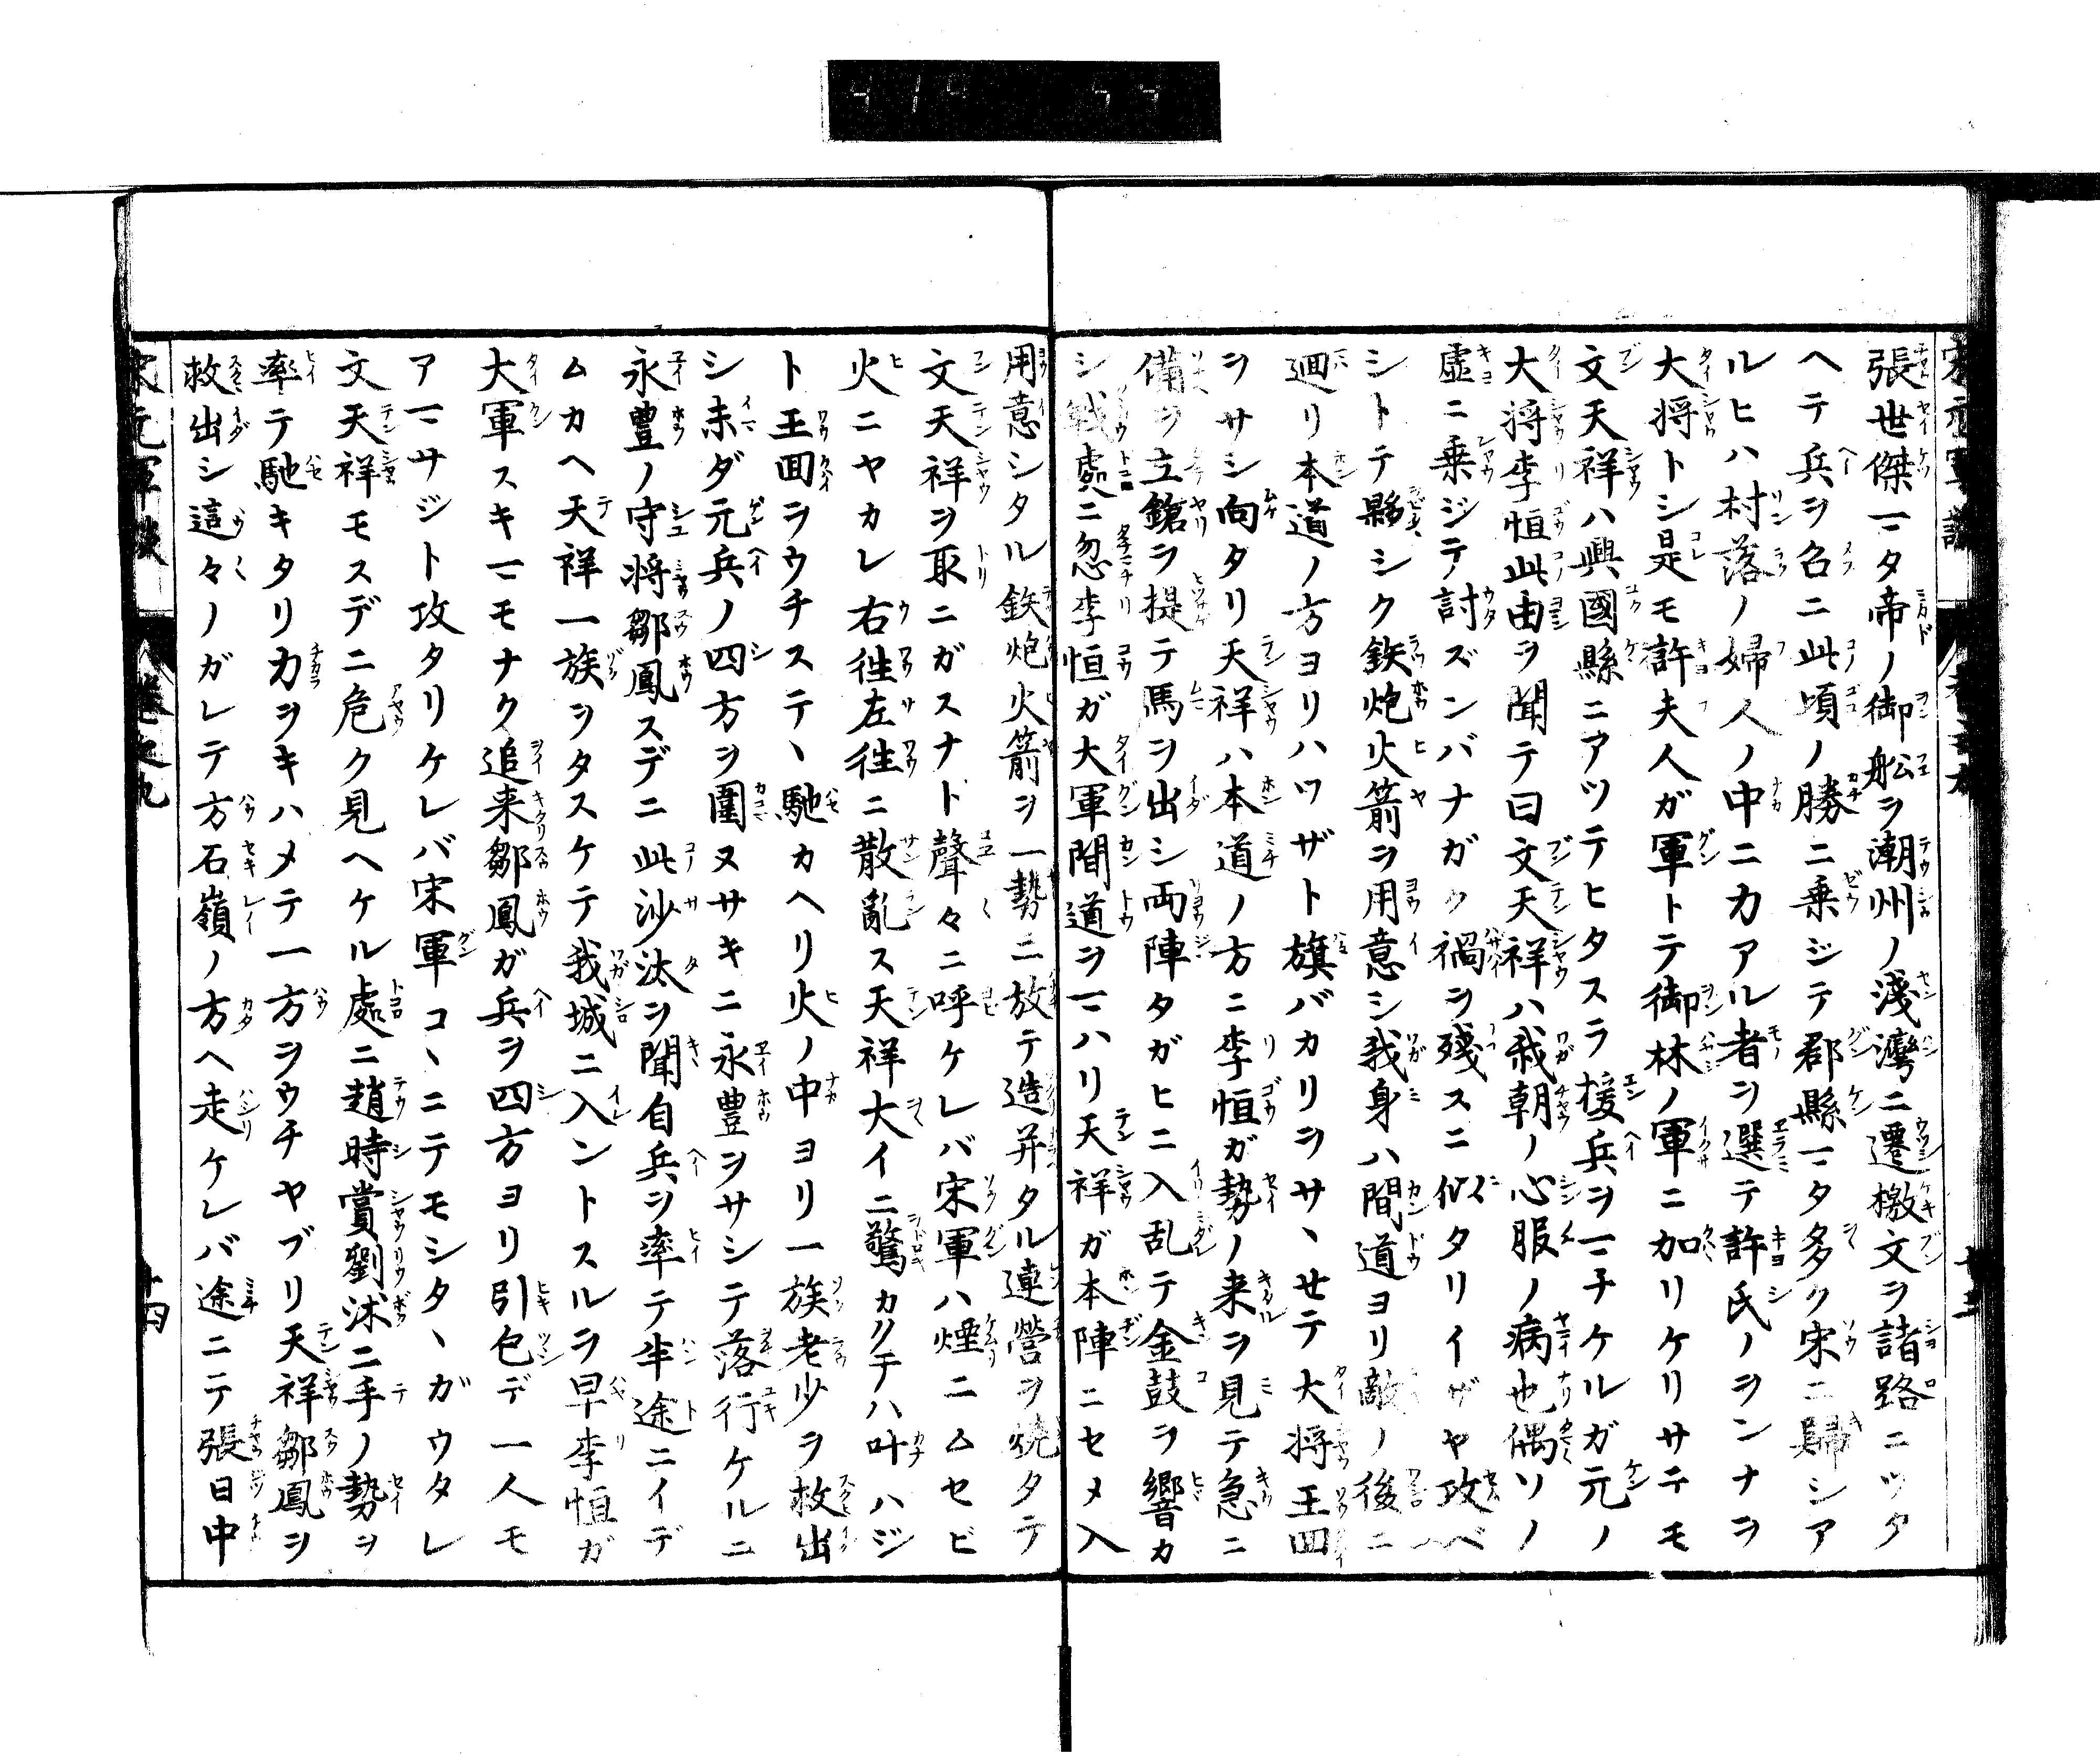 張世傑マタ帝ノ御舩ヲ潮州ノ淺灣ニ遷檄文ヲ諸路ニツタ
ヘテ兵ヲ召ニ此頃ノ勝ニ乗ジテ郡縣マタ多ク宋ニ歸シア
ルヒハ村落ノ婦人ノ中ニカアル者ヲ選テ許氏ノヲンナヲ
大将トシ是モ許夫人ガ軍トテ御林ノ軍ニ加リケリサテモ
文天祥ハ興國縣ニアツテヒタスラ援兵ヲマチケルガ元ノ
大将李恒此由ヲ聞テ曰文天祥ハ我朝ノ心服ノ病也偶ソノ
虚ニ乗ジテ討ズンバナガク禍ヲ殘スニ似タリイザヤ攻ベ
シトテ夥シク鉄炮火箭ヲ用意シ我身ハ間道ヨリ敵ノ後ニ
廻リ本道ノ方ヨリハワザト旗バカリヲサヽセテ大将王囬
ヲサシ向タリ天祥ハ本道ノ方ニ李恒ガ勢ノ来ヲ見テ急ニ
備ヲ立鎗ヲ提テ馬ヲ出シ両陣タガヒニ入乱テ金鼓ヲ響カ
シ戦處ニ忽李恒ガ大軍間道ヲマハリ天祥ガ本陣ニセメ入
用意シタル鉄炮火箭ヲ一勢ニ放テ造并タル連營ヲ焼タテ
文天祥ヲ取ニガスナト聲々ニ呼ケレバ宋軍ハ煙ニムセビ
火ニヤカレ右徃左徃ニ散亂ス天祥大イニ驚カクテハ叶ハジ
ト王囬ヲウチステヽ馳カヘリ火ノ中ヨリ一族老少ヲ救出
シ未ダ元兵ノ四方ヲ圍ヌサキニ永豊ヲサシテ落行ケルニ
永豊ノ守将鄒鳳スデニ此沙汰ヲ聞自兵ヲ率テ半途ニイデ
ムカヘ天祥一族ヲタスケテ我城ニ入ントスルヲ早李恒ガ
大軍スキマモナク追来鄒鳳ガ兵ヲ四方ヨリ引包デ一人モ
アマサジト攻タリケレバ宋軍コヽニテモシタヽガウタレ
文天祥モスデニ危ク見ヘケル處ニ趙時賞劉沭二手ノ勢ヲ
率テ馳キタリ力ヲキハメテ一方ヲウチヤブリ天祥鄒鳳ヲ
救出シ這々ノガレテ方石嶺ノ方ヘ走ケレバ途ニテ張日中
宋元軍談 卷之九 十四